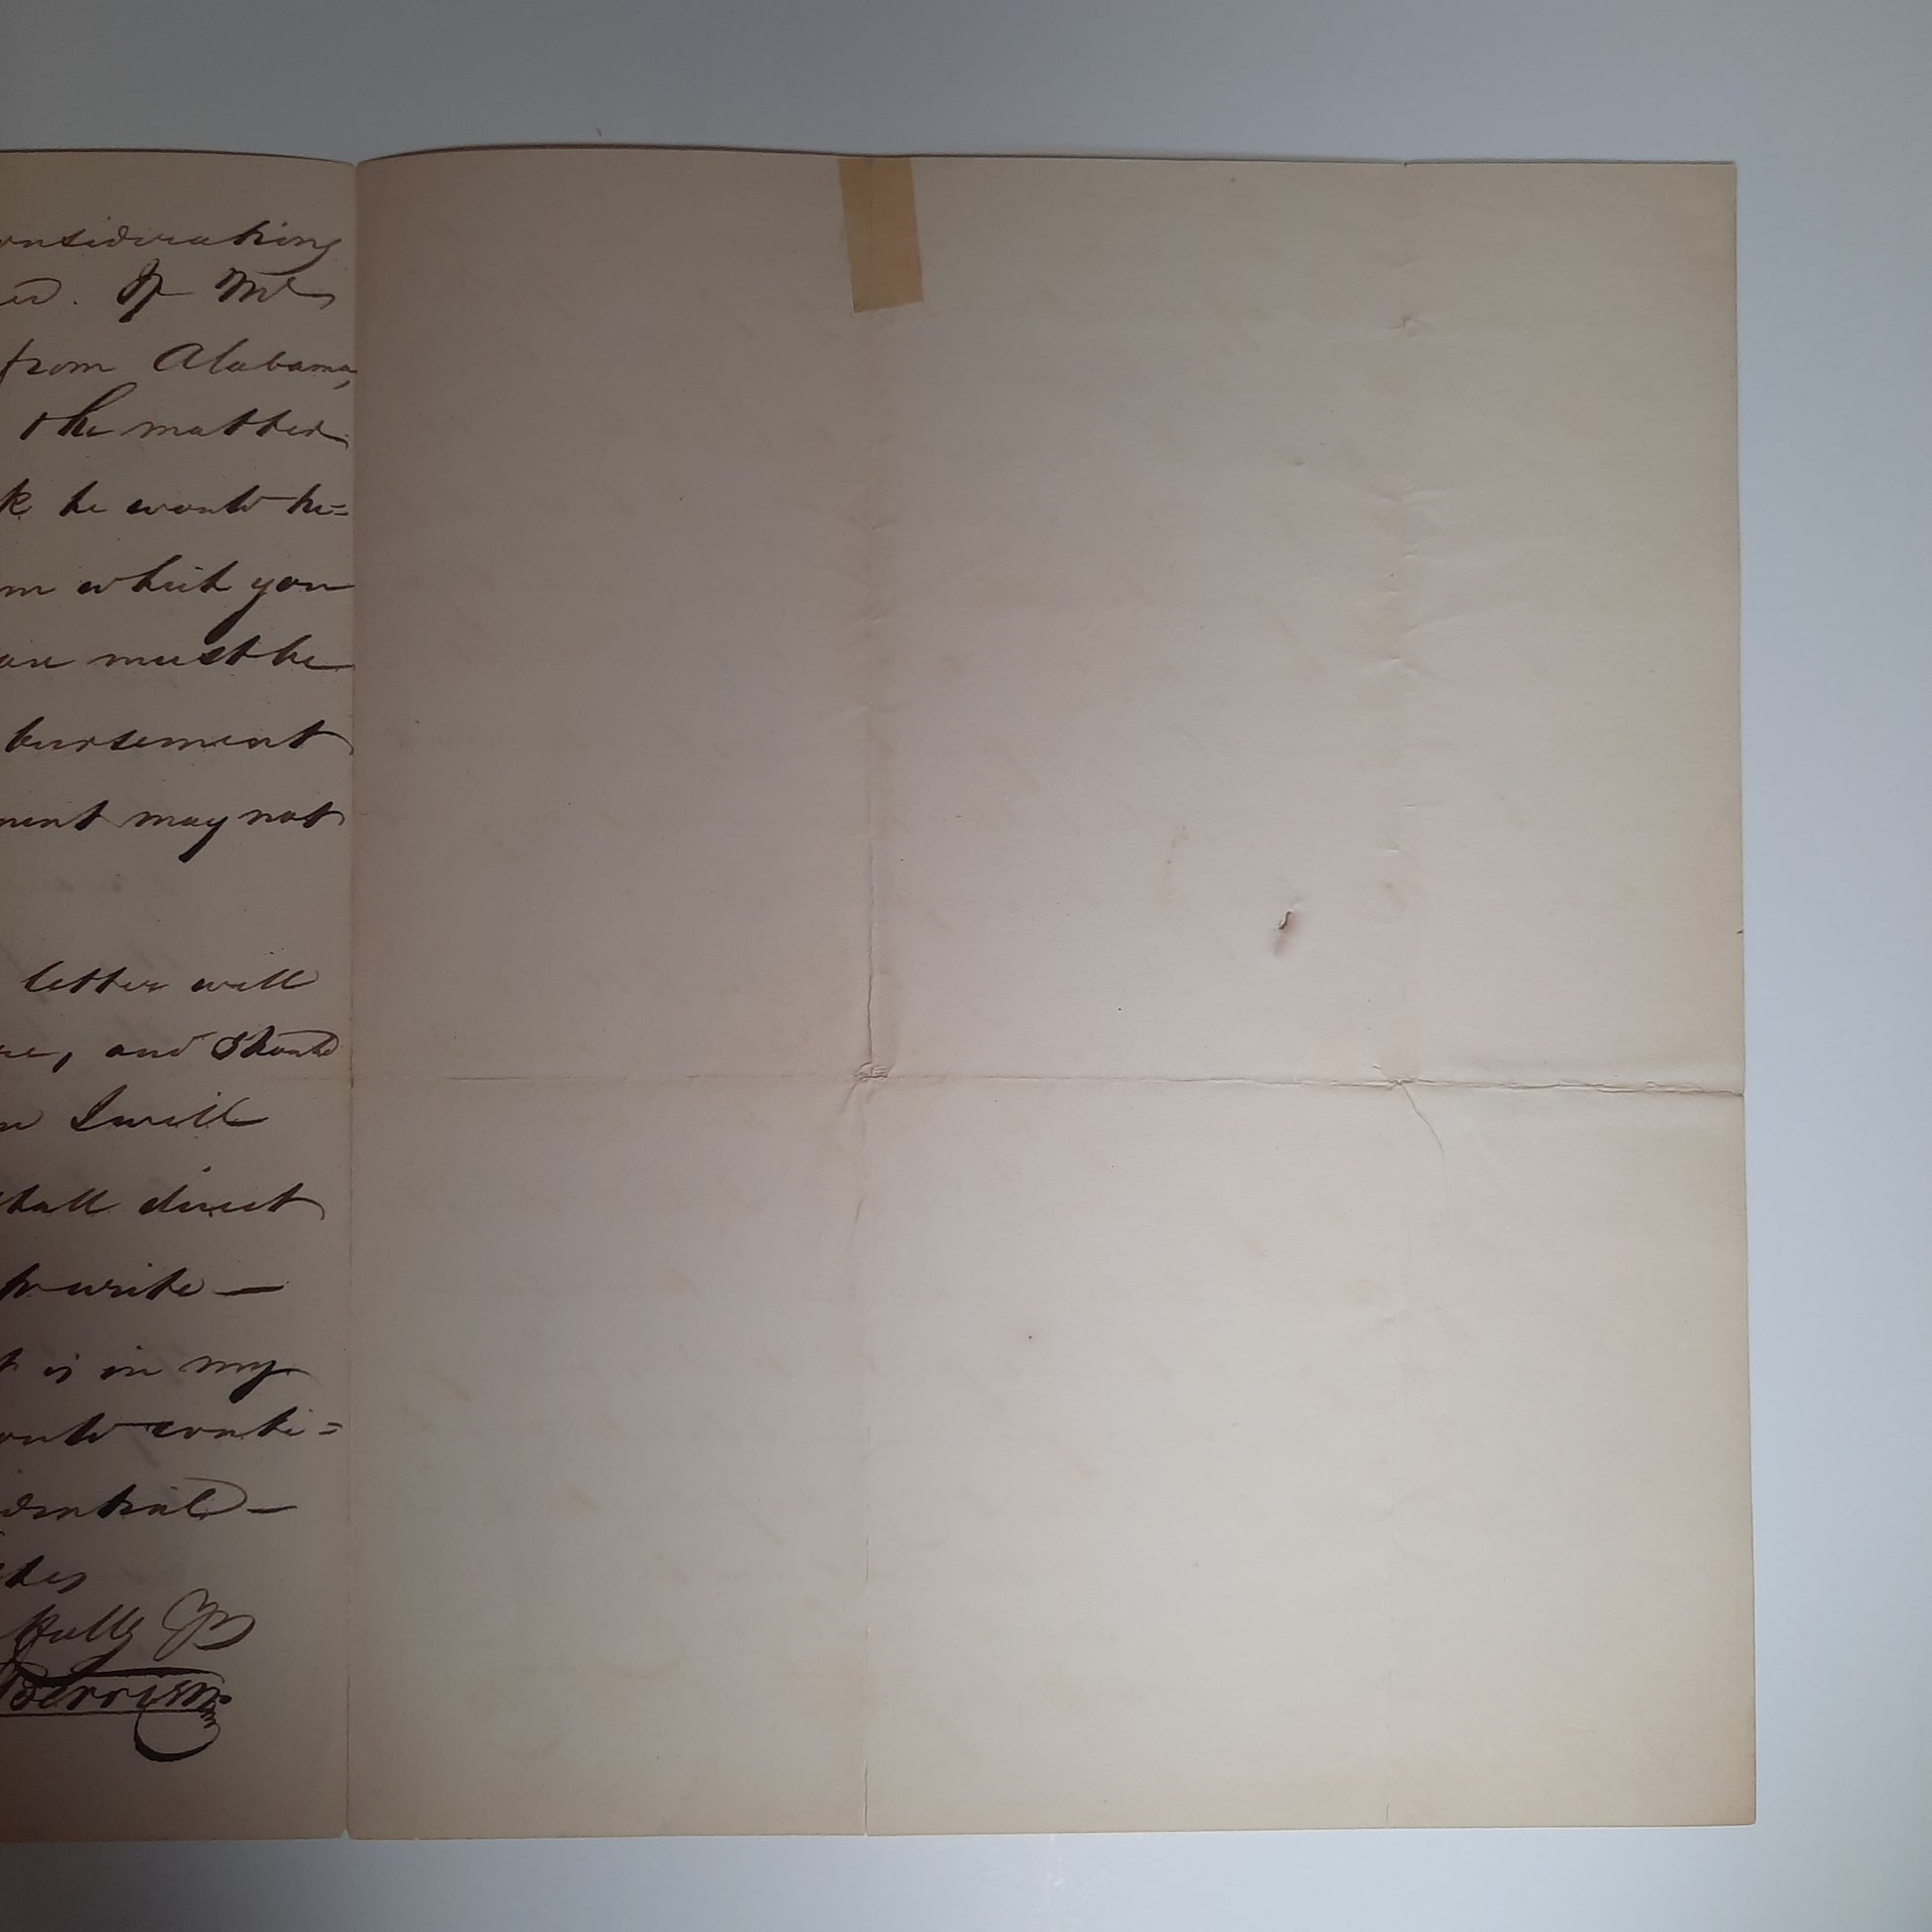 onsiderations
ed. If Mr
from Alabama,
the matter
k he would be=
m which you
ou must be
bursement
ment may not
letter will
re, and should
I will
hall direct
to write —
t is in my
ould confi=
dential —
hes
Berrien